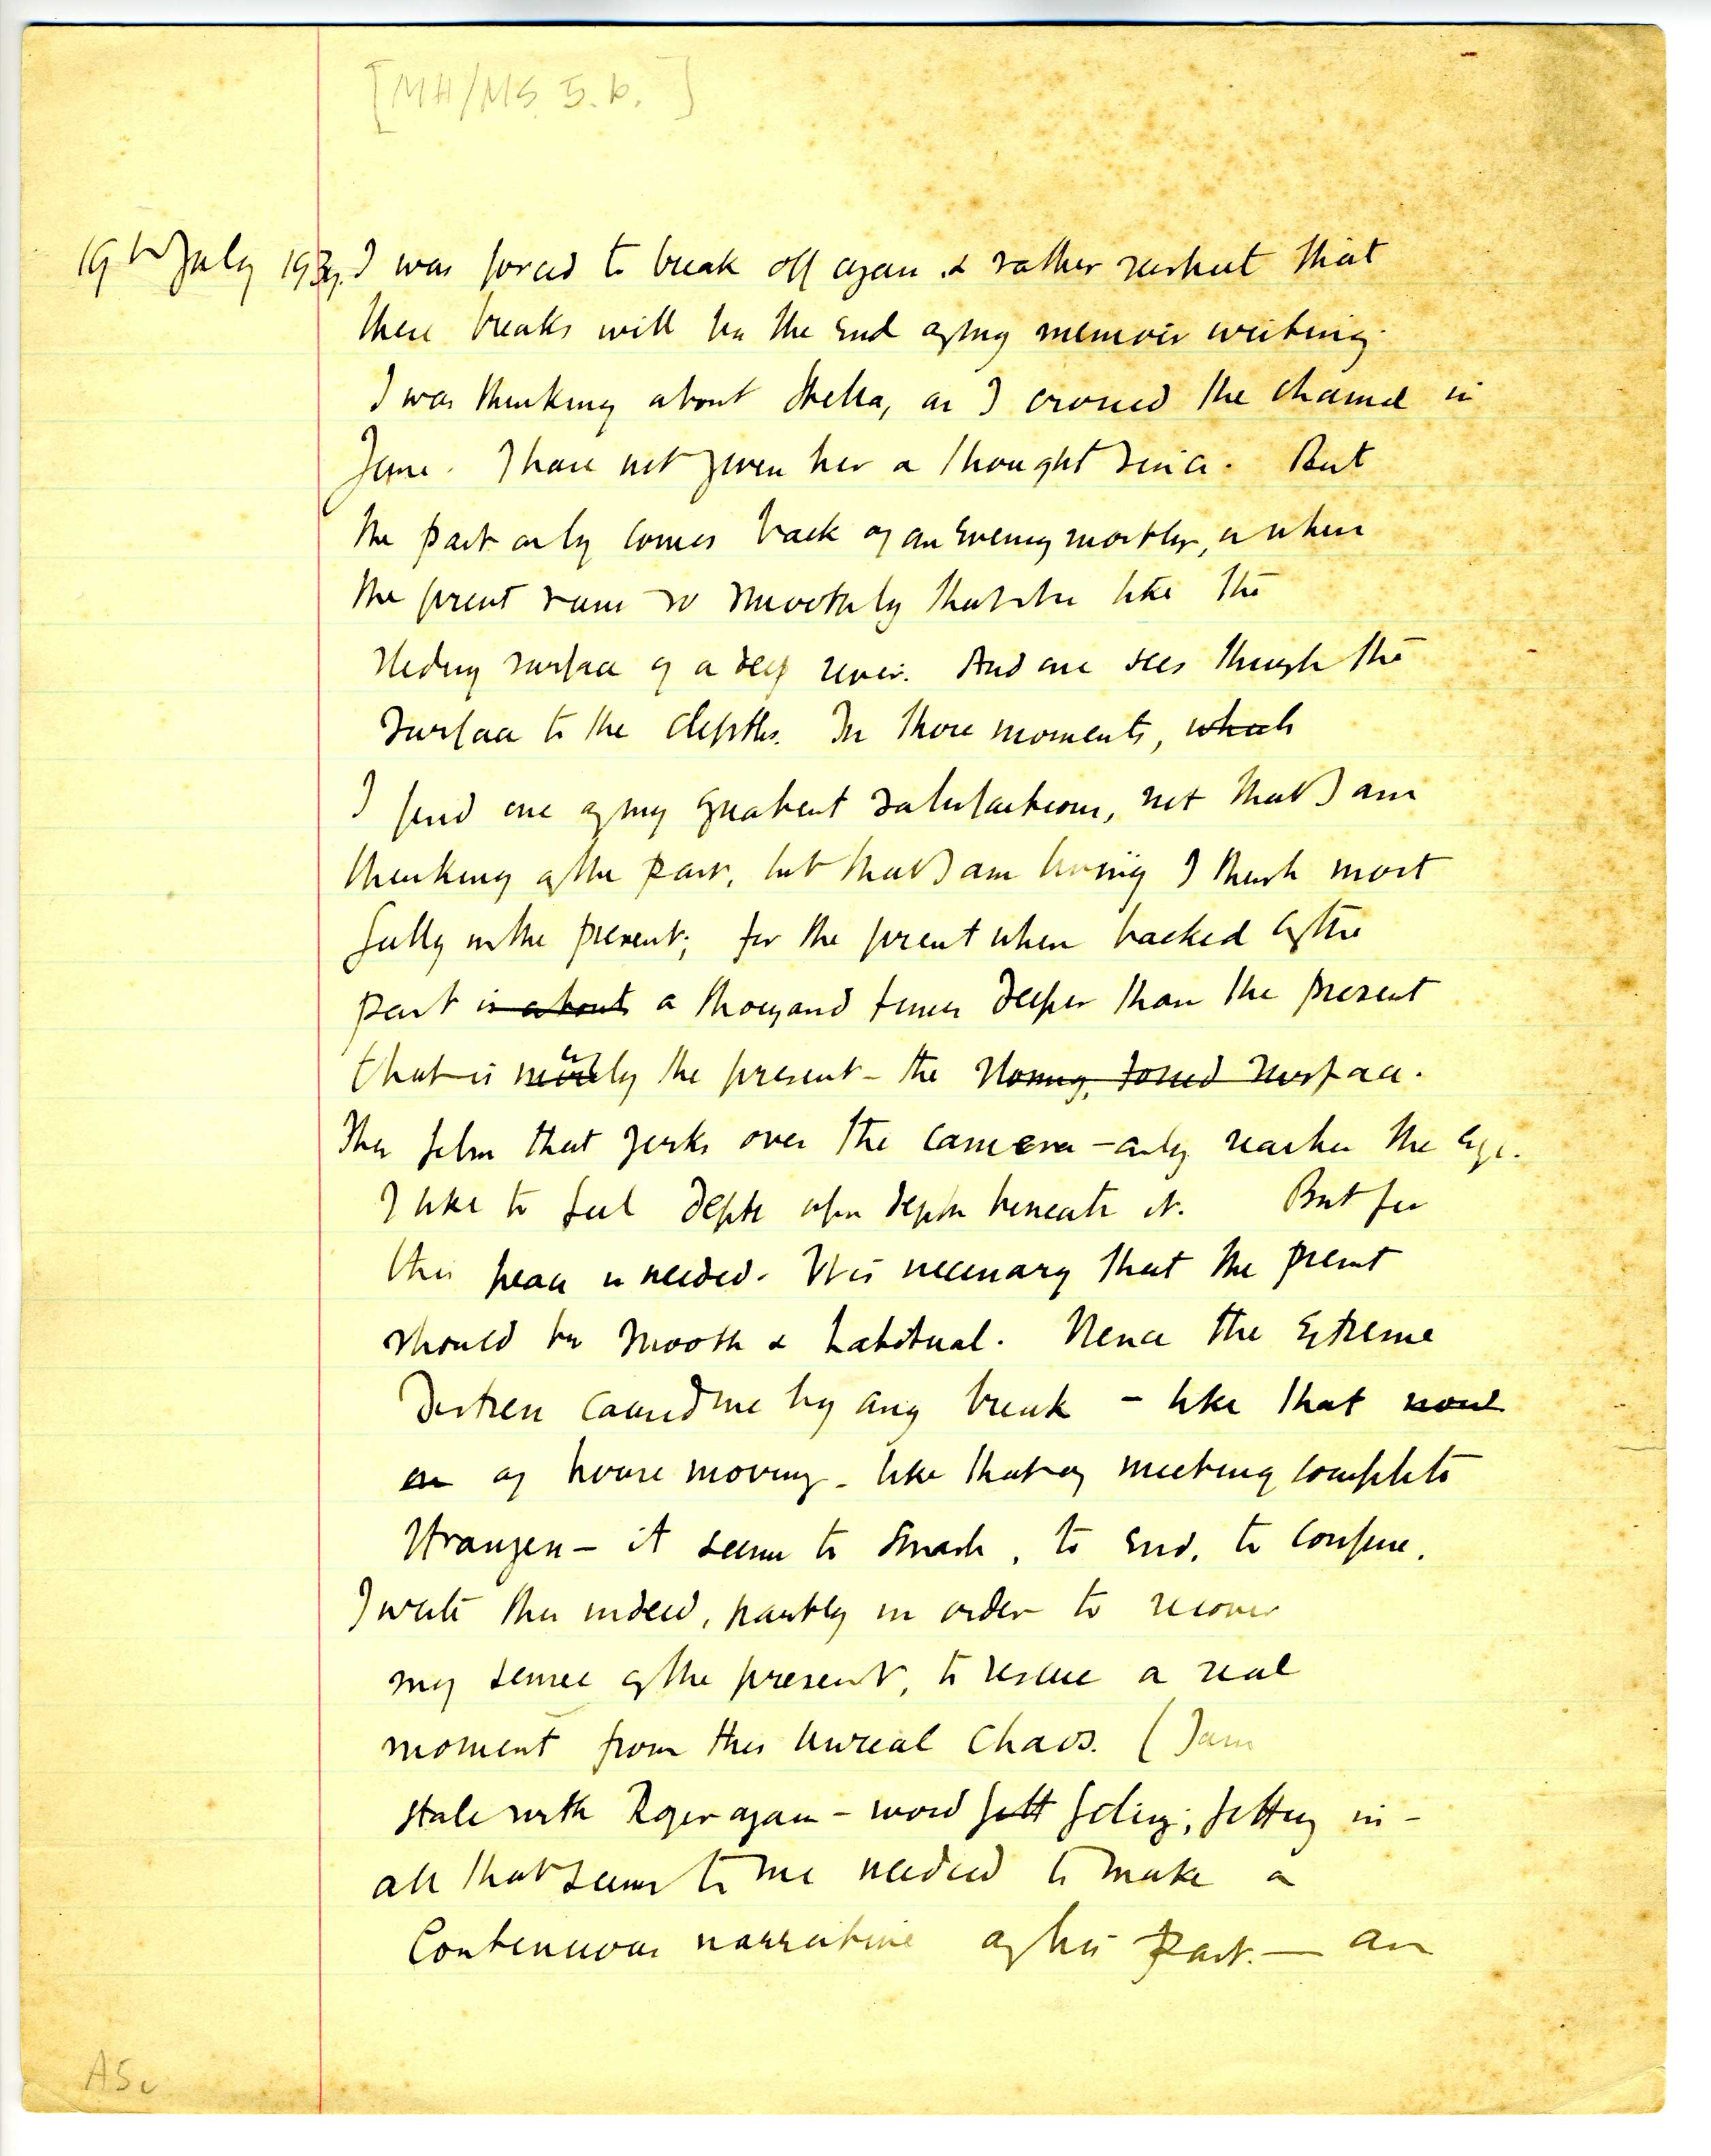 [MH/MS 5.b.]
19th July 1939. I was forced to break off again & rather suspect that
these breaks will be the end of my memoir writing.
I was thinking about Stella, as I crossed the channel in
June. I have not given her a thought since. But
the past only comes back of an evening mostly, or when
the present runs so smoothly that it is like the
sliding surface of a deep river. And one sees through the
surface to the depths. In those moments, which
I find one of my greatest satisfactions, not that I am
thinking of the past, but that I am living I think most
fully in the present; for the present when backed by the
past is about a thousand times deeper than the present
that is merely the present - the surface.
The film that jerks over the camera - only reaches the eye.
I like to feel depth upon depth beneath it. But for
this peace is needed. It is necessary that the present
should be smooth & habitual. Hence the extreme
distress caused me by any break - like that
of house moving - like that of meeting complete
strangers - it seems to smash, to end, to confuse.
I write this indeed, partly in order to recover
my sense of the present, to rescue a real
moment from this unreal chaos. (I am
stale with Roger again - word filing; fitting in -
all that seems to me needed to make a
continuous narrative of his past. - an
A5c